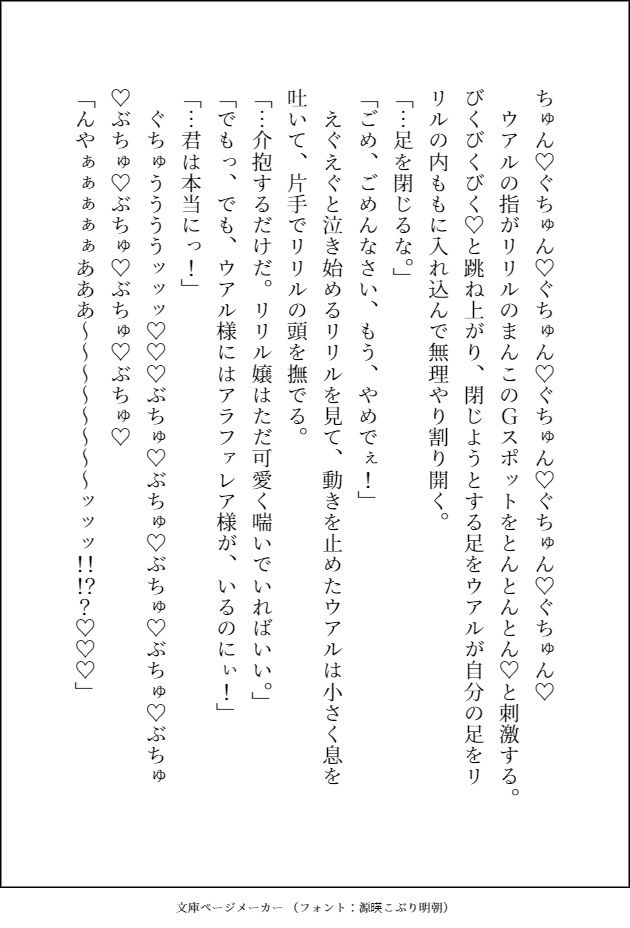 ちゅん♡ぐちゅん♡ぐちゅん♡ぐちゅん♡ぐちゅん♡ぐちゅん♡
　ウアルの指がリリルのまんこのＧスポットをとんとんとん♡と刺激する。
びくびくびく♡と跳ね上がり、閉じようとする足をウアルが自分の足をリ
リルの内ももに入れ込んで無理やり割り開く。
「…足を閉じるな。」
「ごめ、ごめんなさい、もう、やめでぇ！」
　えぐえぐと泣き始めるリリルを見て、動きを止めたウアルは小さく息を
吐いて、片手でリリルの頭を撫でる。
「…介抱するだけだ。リリル嬢はただ可愛く喘いでいればいい。」
「でもっ、でも、ウアル様にはアラファレア様が、いるのにぃ！」
「…君は本当にっ！」
　ぐちゅううううッッッ♡♡♡ぶちゅ♡ぶちゅ♡ぶちゅ♡ぶちゅ♡ぶちゅ
♡ぶちゅ♡ぶちゅ♡ぶちゅ♡ぶちゅ♡
「んやぁぁぁぁぁあああ～～～～～～～～ッッッ!!!?？♡♡♡」
文庫ページメーカー（フォント：源暎こぶり明朝）